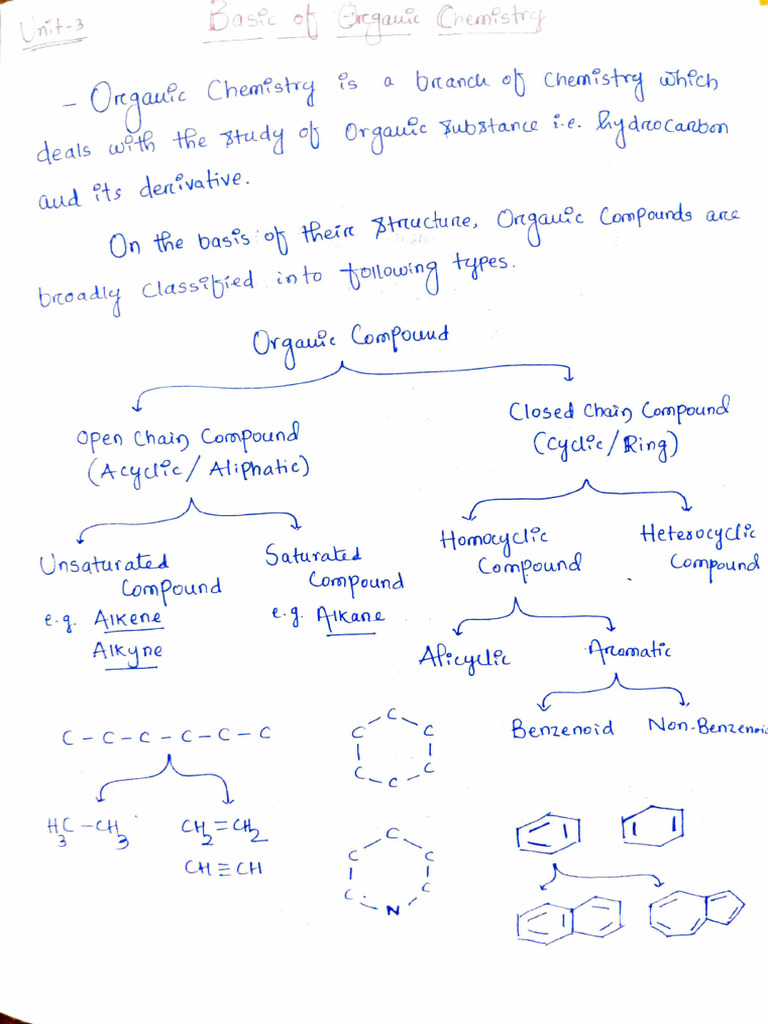 Unit-3
Basic of Organic Chemistry
- Organic Chemistry is a branch of chemistry which
deals with the study of organic substance i.e. hydrocarbon
and its derivative.
On the basis of their structure, Organic Compounds are
broadly classified into following types.
Organic Compound
Open Chain Compound
(Acyclic/Aliphatic)
Closed Chain Compound
(Cyclic/Ring)
Unsaturated
Compound
e.g. Alkene
Alkyne
Saturated
Compound
e.g. Alkane
Homocyclic
Compound
Heterocyclic
Compound
Alicyclic
Aromatic
Benzenoid
Non-Benzenoi
C-C-C-C-C-C
H3C-CH3
CH2=CH2
CH≡CH
C
C C
C C
C
C
C C
C C
N